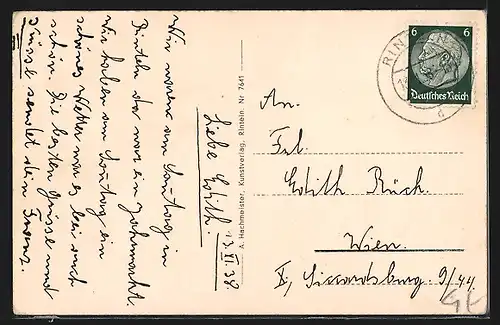 Liebe Edith!
13.VI.38.
Wir waren am Sonntag in
Rinteln da war ein Jahrmarkt.
Wir haben am Sonntag ein
schönes Wetter war es bei euch
schön. Die besten Grüsse und
Küsse sendet dein Franz.
A. Hachmeister, Kunstverlag, Rinteln. Nr 7641
6 6
Deutsches Reich
RINTELN
d
An.
Frl.
Edith Rück.
Wien.
X, Siccardsburg. 9/44.